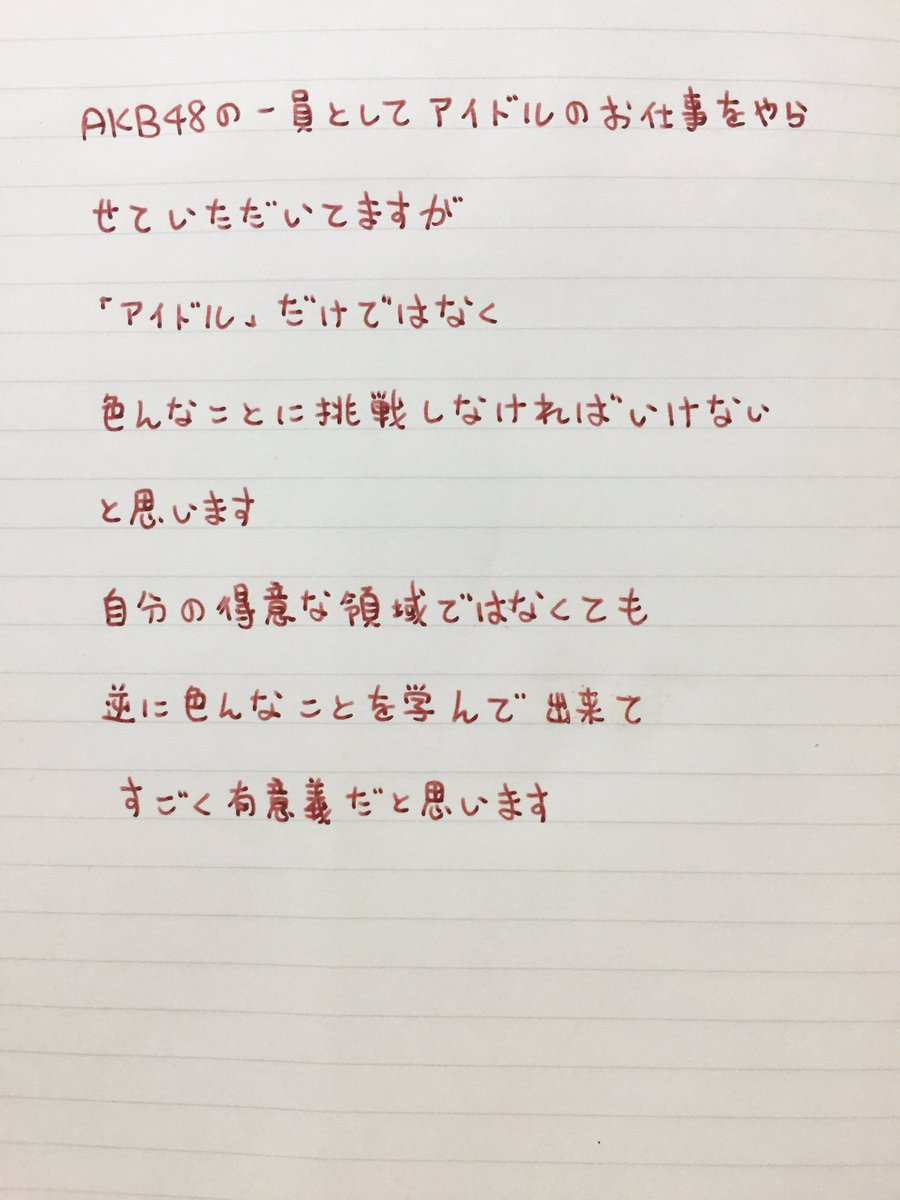 AKB48の一員としてアイドルのお仕事をやら
せていただいてますが
「アイドル」だけではなく
色んなことに挑戦しなければいけない
と思います
自分の得意な領域ではなくても
逆に色んなことを学んで出来て
すごく有意義だと思います